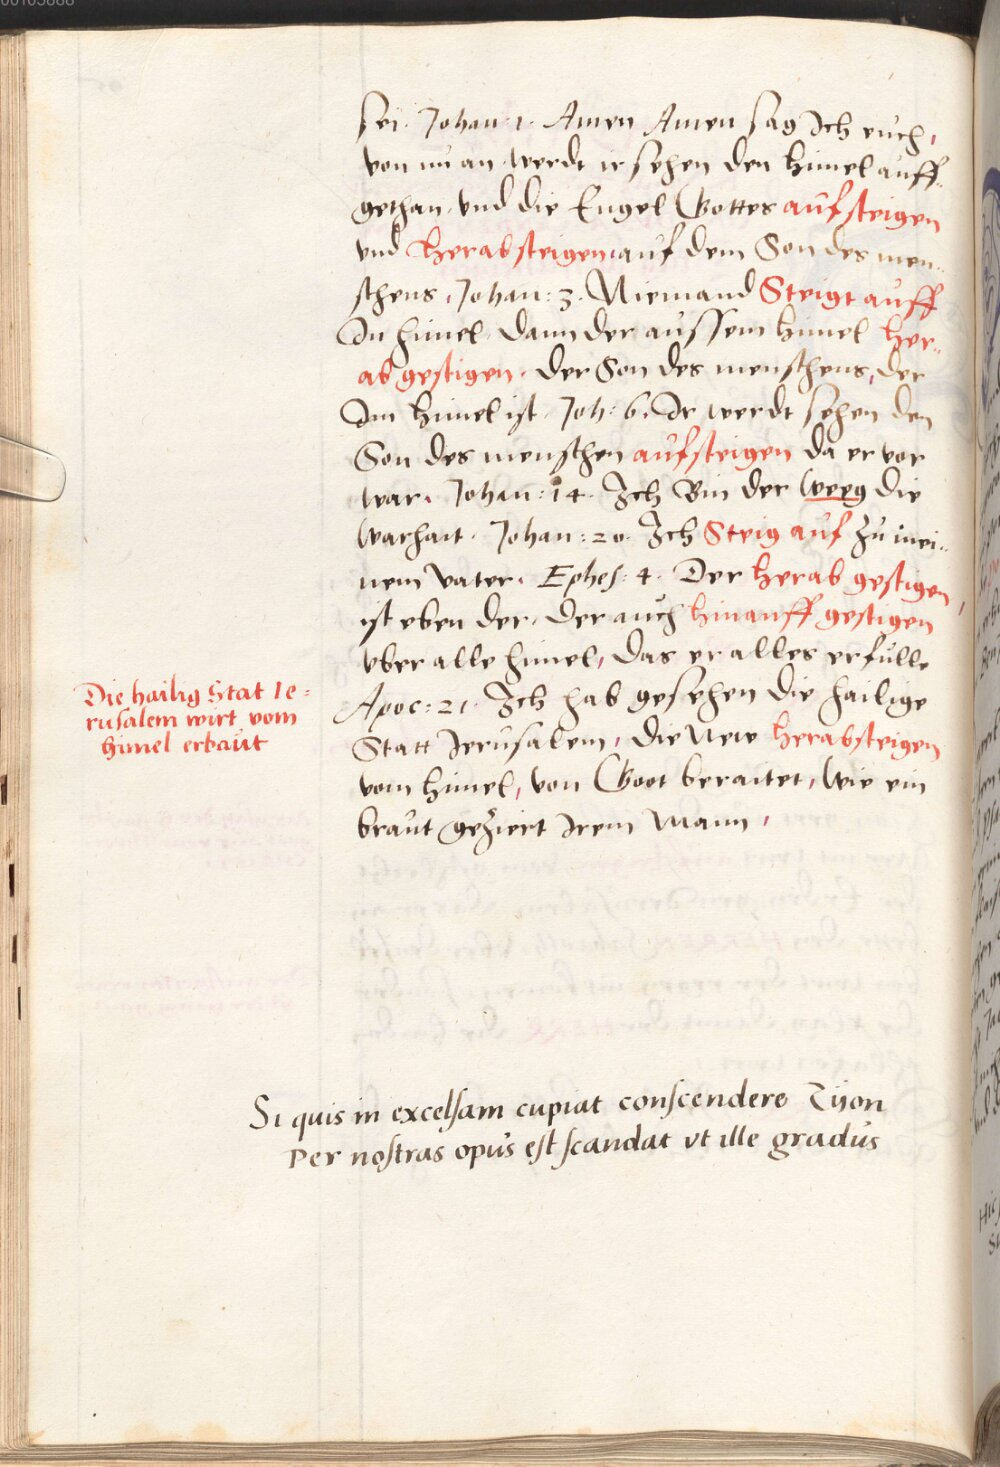 sei. Johan: 1. Amen Amen sag Ich euch,
von nu an werdt ir sehen den himel auff-
gethan, vnd die Engel Gottes aufsteigen
vnd herabsteigen auf dem Son des men-
schens, Johan: 3. Niemand Steigt auff
In himel, dann der aussem himel her-
ab gestigen. der Son des menschens, der
Im himel ist. Joh: 6. Ir werdt sehen den
Son des menschen aufsteigen da er vor
war. Johan: 14. Ich Bin der Weeg die
Warhait. Johan: 20. Ich Steig auf zu mei-
nem vater. Ephes: 4. Der herab gestigen,
ist eben der, der auch hinauff gestigen
vber alle himel, das er alles erfulle
Apoc: 21. Ich hab gesehen die hailige
Statt Jerusalem, die New herabsteigen
vom himel, von Goot beraitet, Wie ein
braut geziert Irem Mann,
Die hailig Stat Ie-
rusalem wirt vom
himel erbaut
Si quis in excelsam cupiat conscendere Zijon
Per nostras opus est scandat vt ille gradus